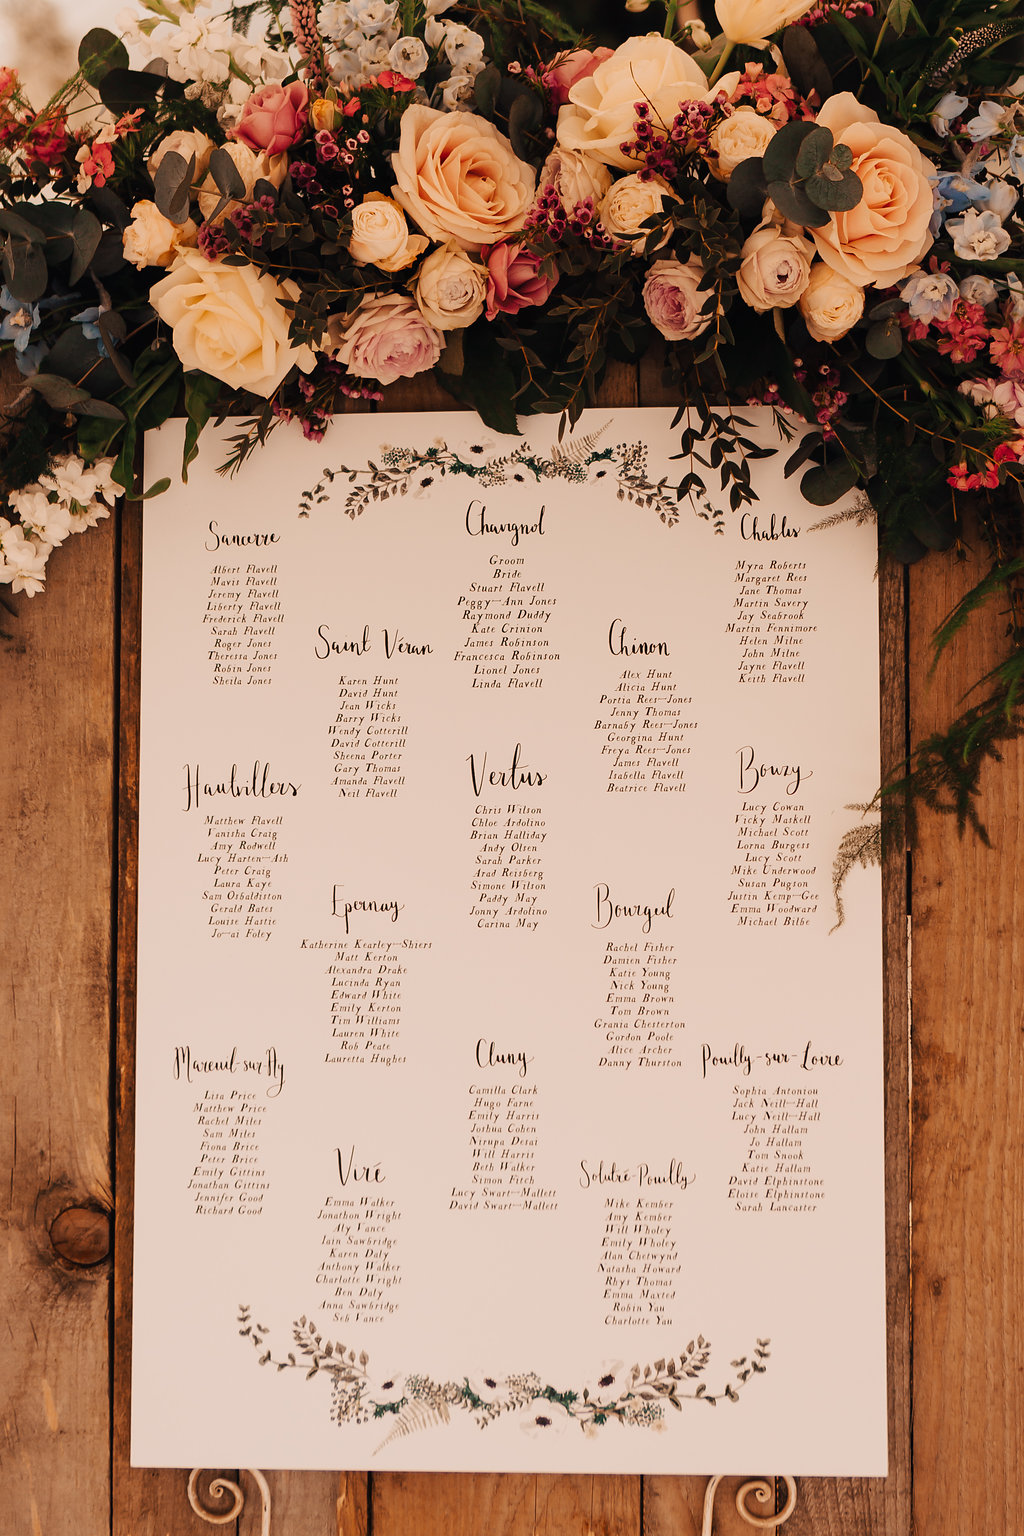 Sancerre
Albert Flavell
Mavis Flavell
Jeremy Flavell
Liberty Flavell
Frederick Flavell
Sarah Flavell
Roger Jones
Theressa Jones
Robin Jones
Sheila Jones
Chavignol
Groom
Bride
Stuart Flavell
Peggy-Ann Jones
Raymond Duddy
Kate Crinion
James Robinson
Francesca Robinson
Lionel Jones
Linda Flavell
Chablis
Myra Roberts
Margaret Rees
Jane Thomas
Martin Savery
Jay Seabrook
Martin Fennimore
Helen Milne
John Milne
Jayne Flavell
Keith Flavell
Saint Véran
Karen Hunt
David Hunt
Jean Wicks
Barry Wicks
Wendy Cotterill
David Cotterill
Sheena Porter
Gary Thomas
Amanda Flavell
Neil Flavell
Chinon
Alex Hunt
Alicia Hunt
Portia Rees-Jones
Jenny Thomas
Barnaby Rees-Jones
Georgina Hunt
Freya Rees-Jones
James Flavell
Isabella Flavell
Beatrice Flavell
Hautvillers
Matthew Flavell
Vanisha Craig
Amy Rodwell
Lucy Harten-Ash
Peter Craig
Laura Kaye
Sam Osbaldiston
Gerald Bates
Louise Hastie
Jo-ai Foley
Vertus
Chris Wilson
Chloe Ardolino
Brian Halliday
Andy Olsen
Sarah Parker
Arad Reisberg
Simone Wilson
Paddy May
Jonny Ardolino
Carina May
Bouzy
Lucy Cowan
Vicky Maskell
Michael Scott
Lorna Burgess
Lucy Scott
Mike Underwood
Susan Pugson
Justin Kemp-Gee
Emma Woodward
Michael Bilbe
Epernay
Katherine Kearley-Shiers
Matt Kerton
Alexandra Drake
Lucinda Ryan
Edward White
Emily Kerton
Tim Williams
Lauren White
Rob Peate
Lauretta Hughes
Bourgeuil
Rachel Fisher
Damien Fisher
Katie Young
Nick Young
Emma Brown
Tom Brown
Grania Chesterton
Gordon Poole
Alice Archer
Danny Thurston
Mareuil-sur-Ay
Lisa Price
Matthew Price
Rachel Miles
Sam Miles
Fiona Brice
Peter Brice
Emily Gittins
Jonathan Gittins
Jennifer Good
Richard Good
Cluny
Camilla Clark
Hugo Farne
Emily Harris
Joshua Cohen
Nirupa Desai
Will Harris
Beth Walker
Simon Fitch
Lucy Swart-Mallett
David Swart-Mallett
Pouilly-sur-Loire
Sophia Antoniou
Jack Neill-Hall
Lucy Neill-Hall
John Hallam
Jo Hallam
Tom Snook
Katie Hallam
David Elphinstone
Eloise Elphinstone
Sarah Lancaster
Viré
Emma Walker
Jonathon Wright
Aly Vance
Iain Sawbridge
Karen Daly
Anthony Walker
Charlotte Wright
Ben Daly
Anna Sawbridge
Seb Vance
Solutré-Pouilly
Mike Kember
Amy Kember
Will Wholey
Emily Wholey
Alan Chetwynd
Natasha Howard
Rhys Thomas
Emma Maxted
Robin Yau
Charlotte Yau